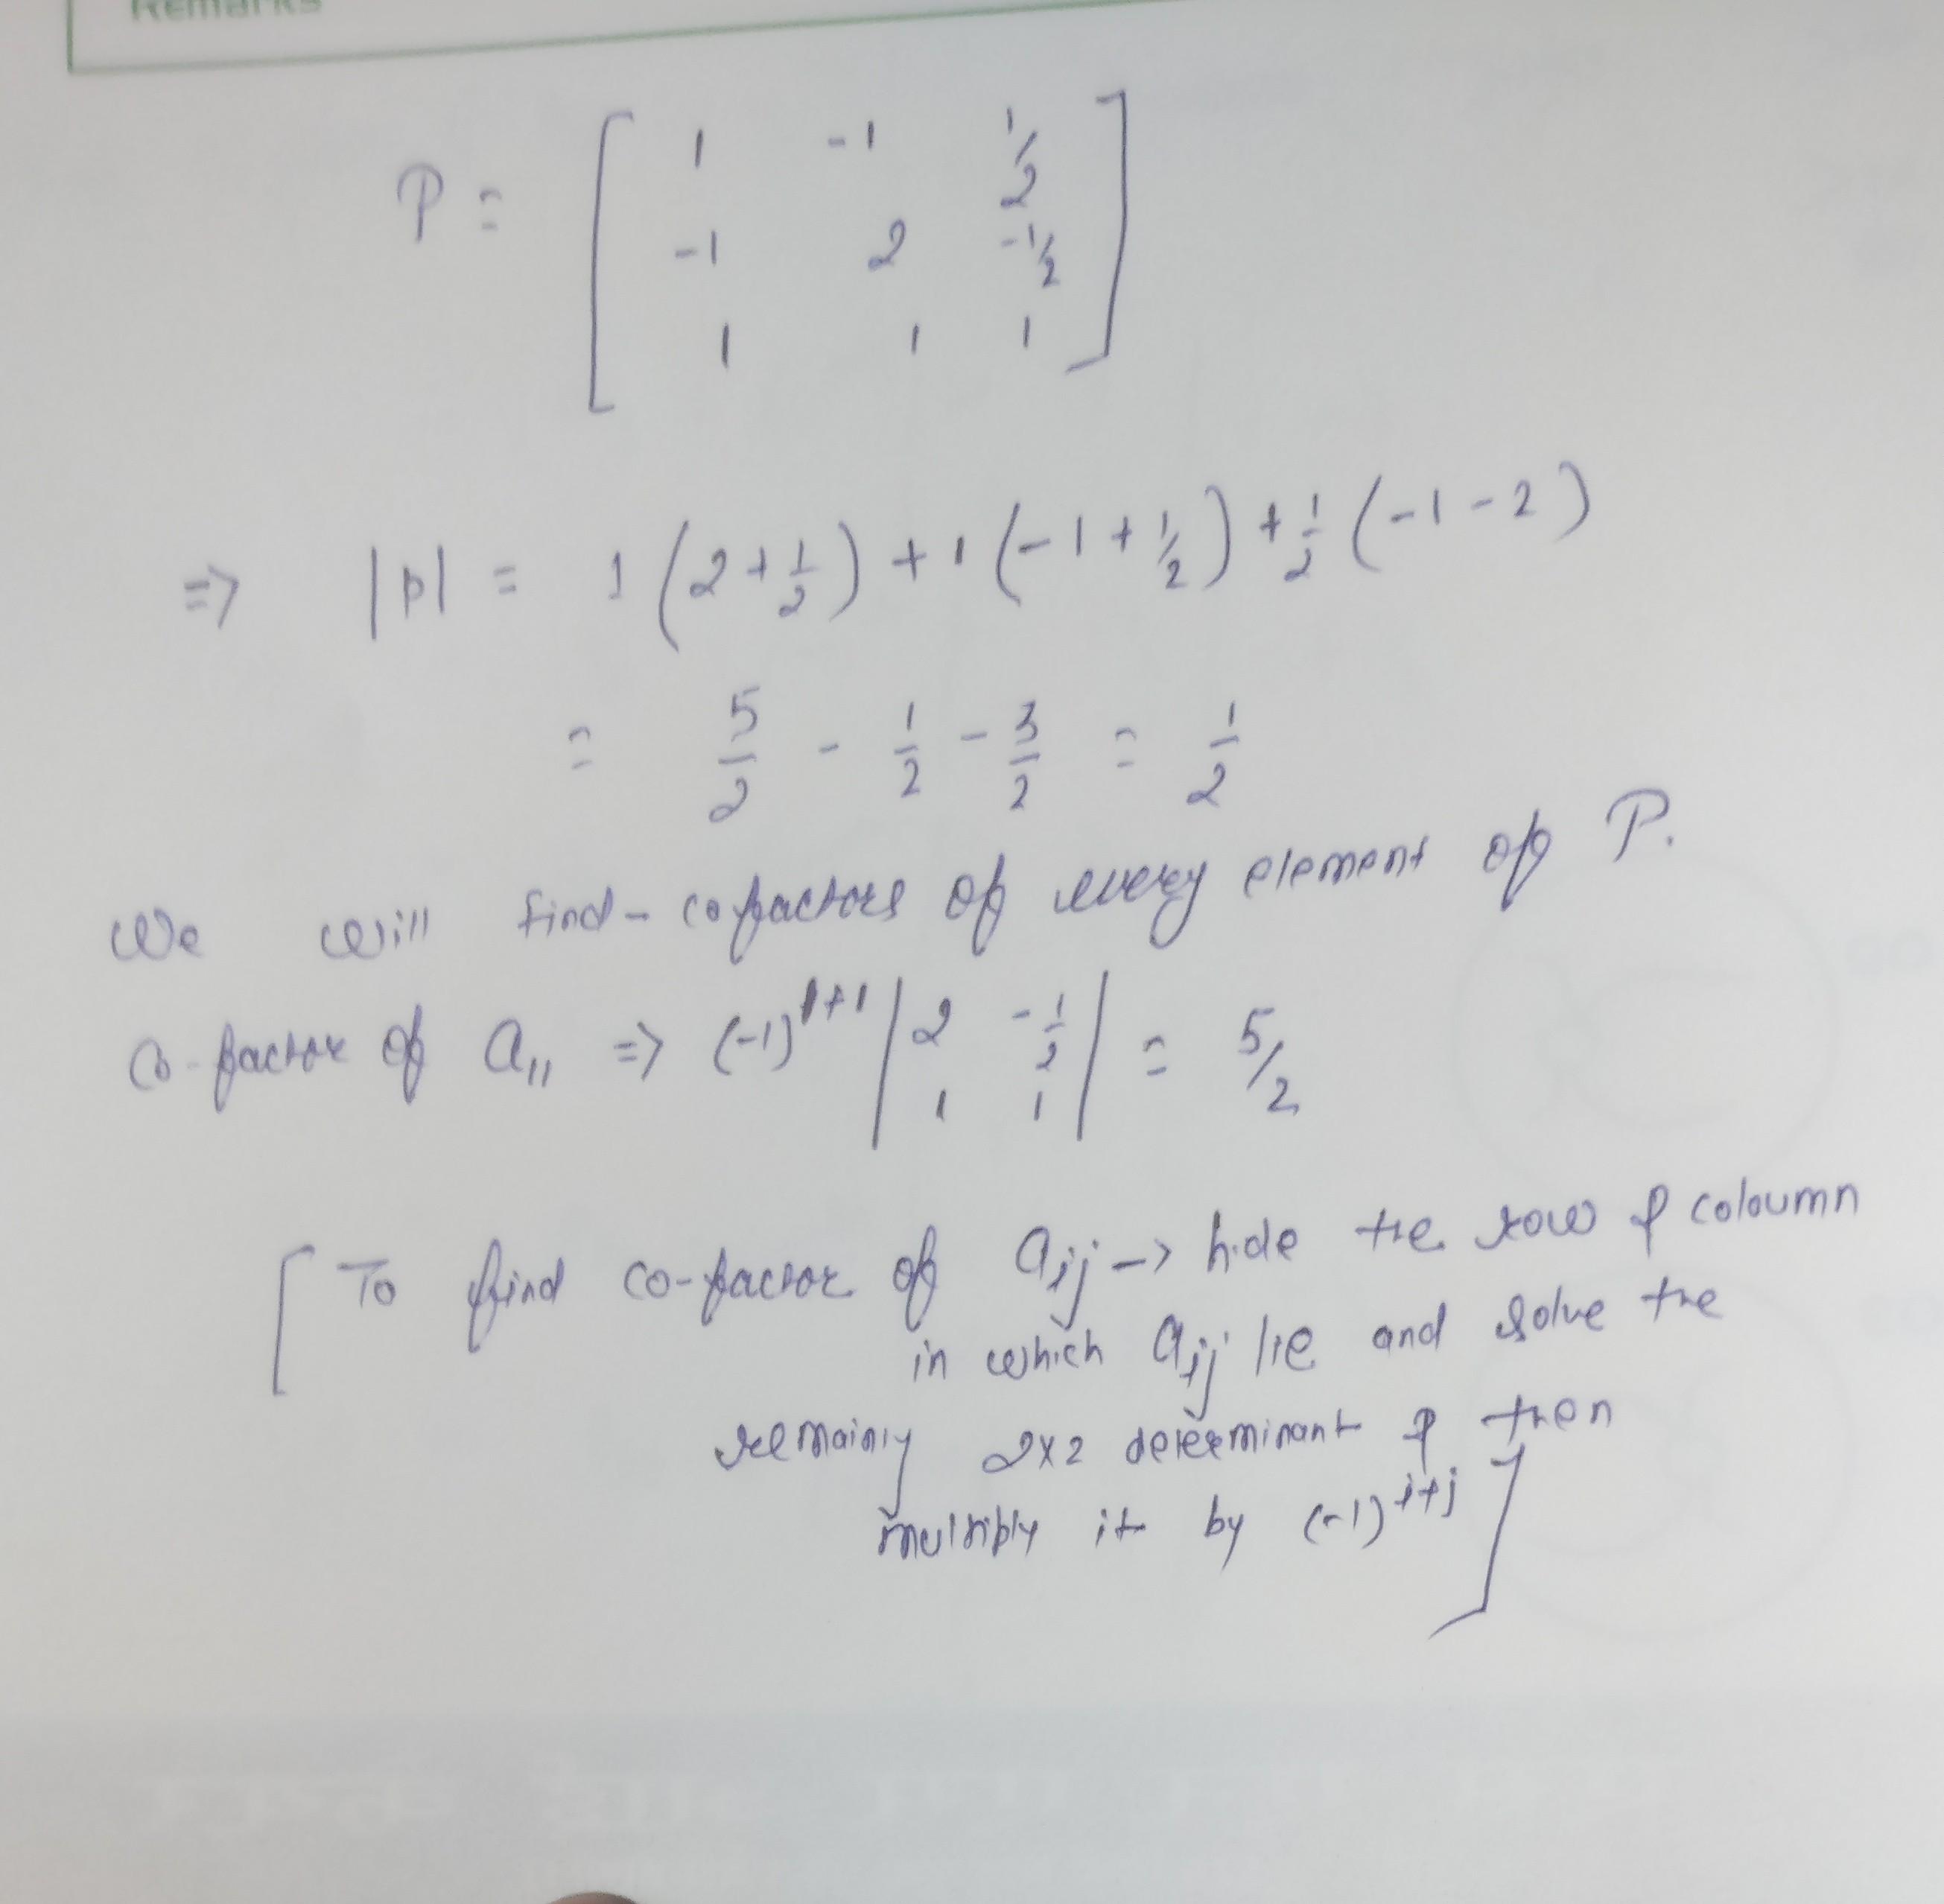 Remarks
P = [ 1 -1 1/2
-1 2 -1/2
1 1 1 ]
=> |P| = 1 (2 + 1/2) + 1 (-1 + 1/2) + 1/2 (-1 - 2)
= 5/2 - 1/2 - 3/2 = 1/2
We will find - cofactors of every element of P.
Co-factor of a11 => (-1)^1+1 | 2 -1/2
1 1 | = 5/2
[ To find co-factor of aij -> hide the row & coloumn
in which aij lie and solve the
remainiy 2x2 determinant & then
multiply it by (-1)^i+j ]